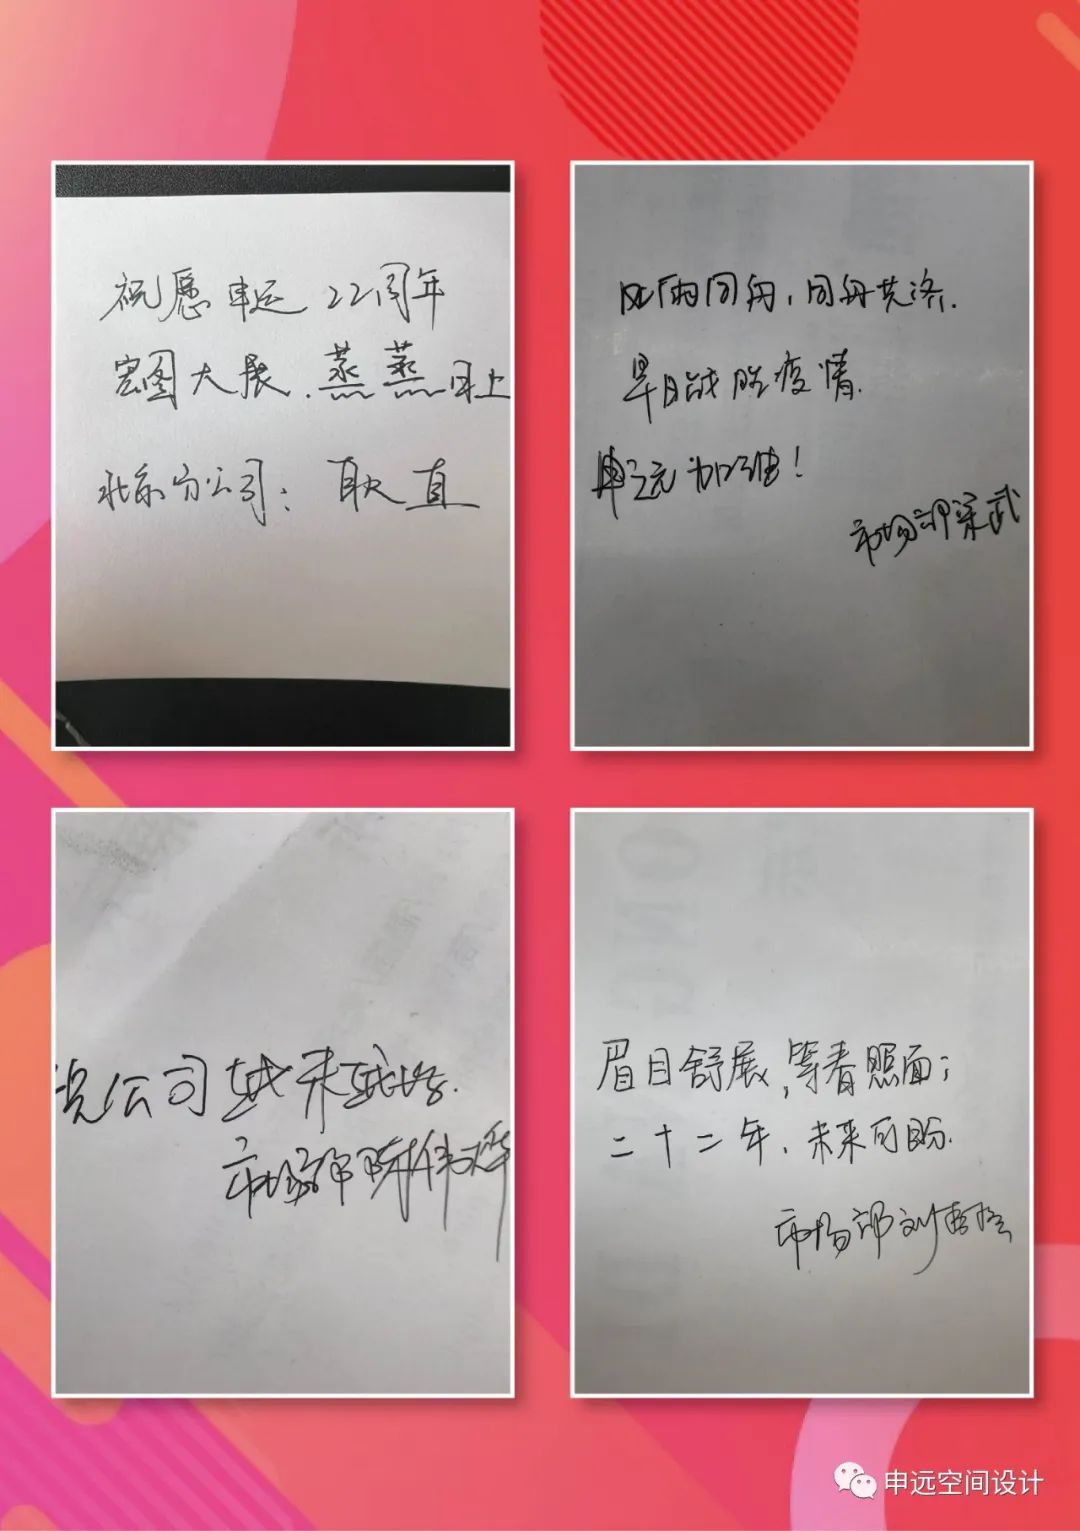 祝愿申远22周年
宏图大展.蒸蒸日上
北京分公司：耿直
风雨同舟，同舟共济.
早日战胜疫情.
申远加油！
市场部梁武
公司越来越好.
市场部陈伟
眉目舒展，等春照面；
二十二年，未来可盼.
市场部刘
申远空间设计